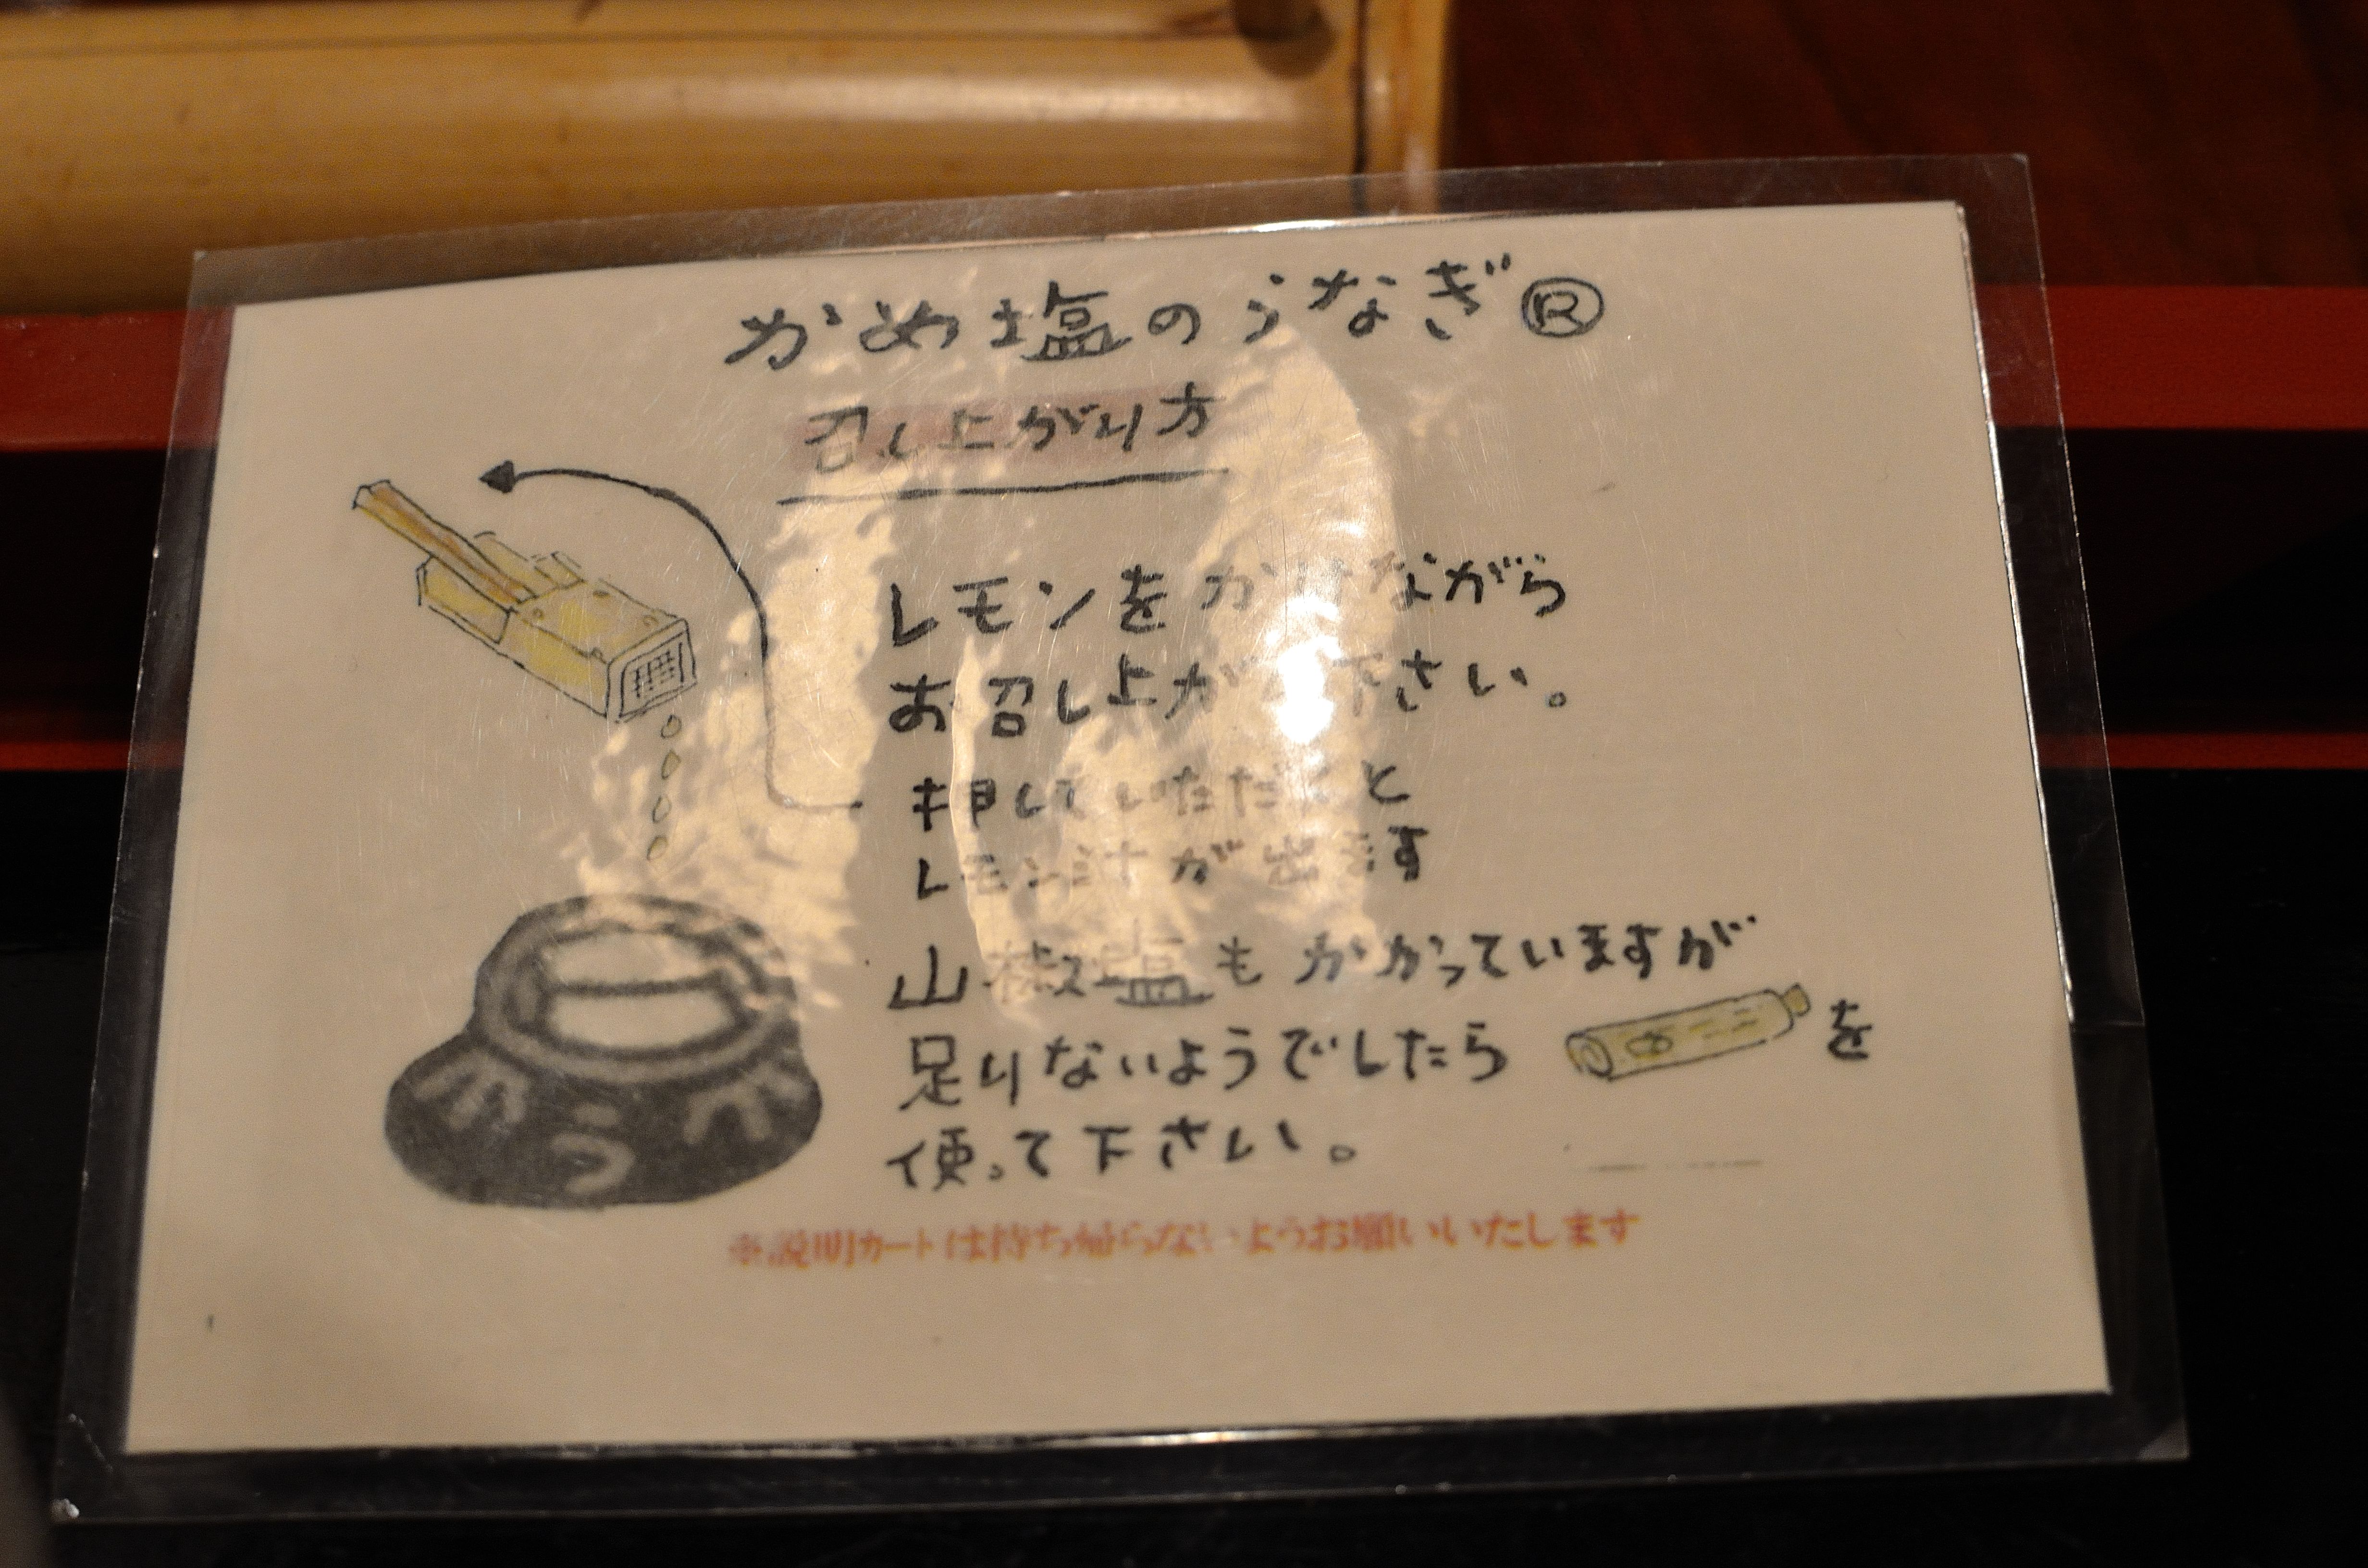 かめ塩のうなぎ®
召し上がり方
レモンをかけながら
お召し上がり下さい。
押していただくと
レモン汁が出ます
山椒塩もかかっていますが
足りないようでしたら を
使って下さい。
※説明カートは持ち帰らないようお願いいたします